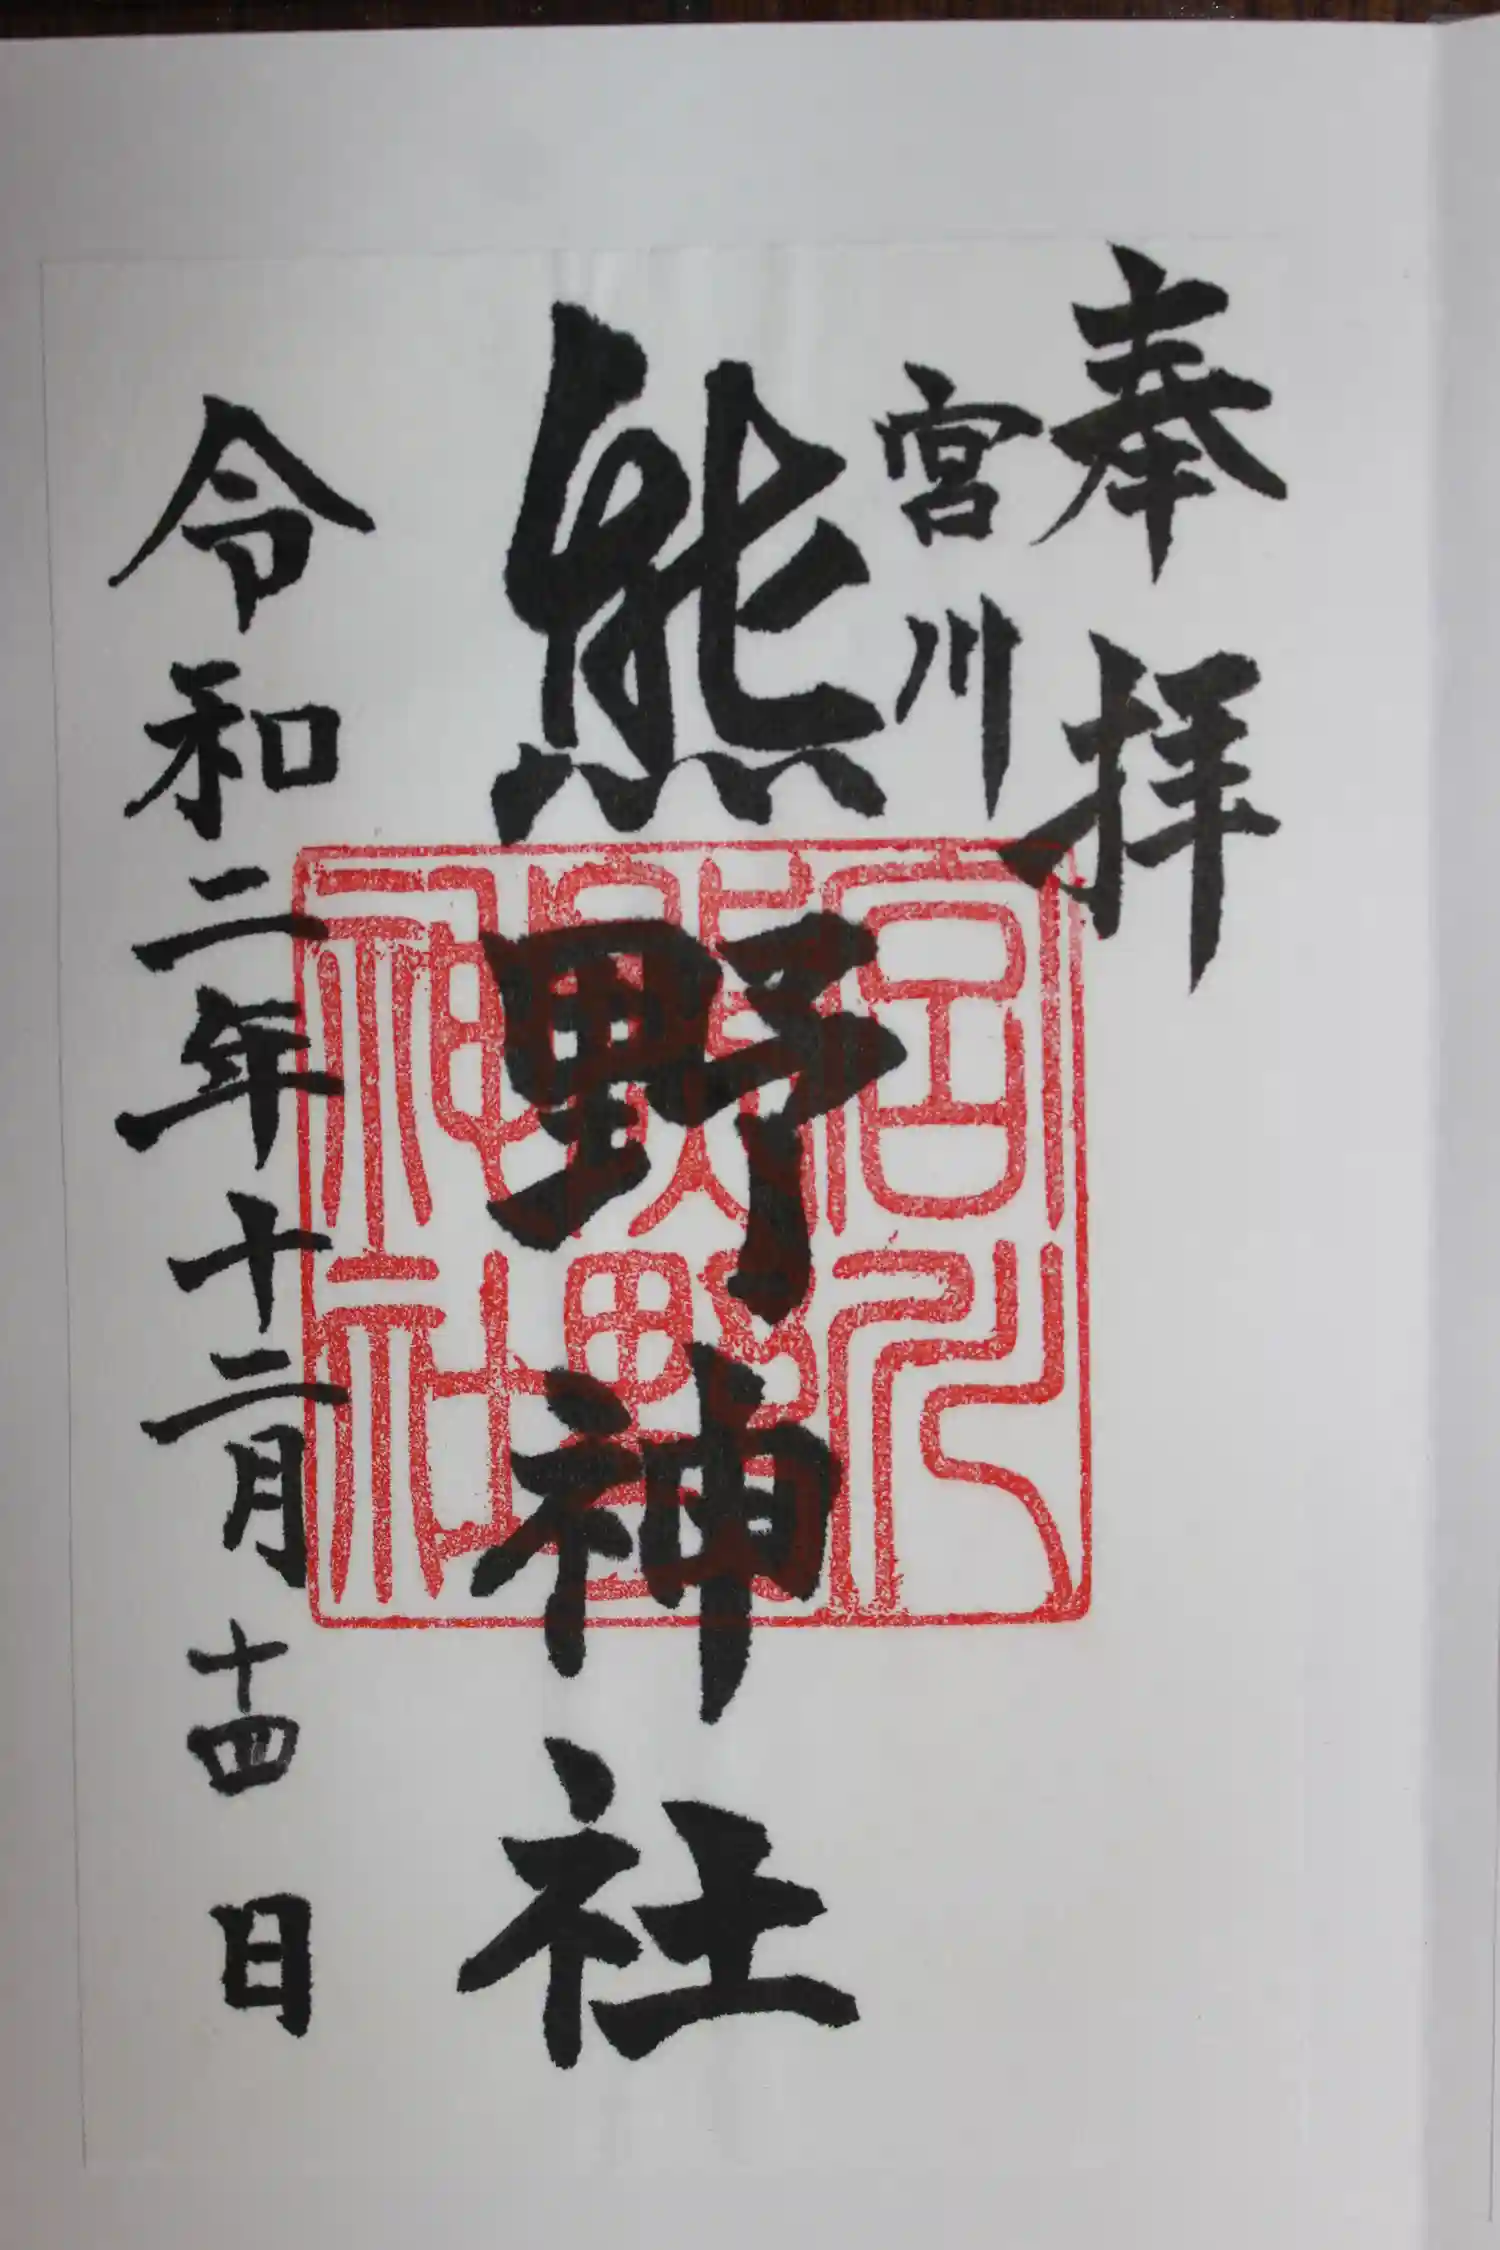 奉拝
宮川
熊野神社
令和二年十二月十四日
宮川熊野神社